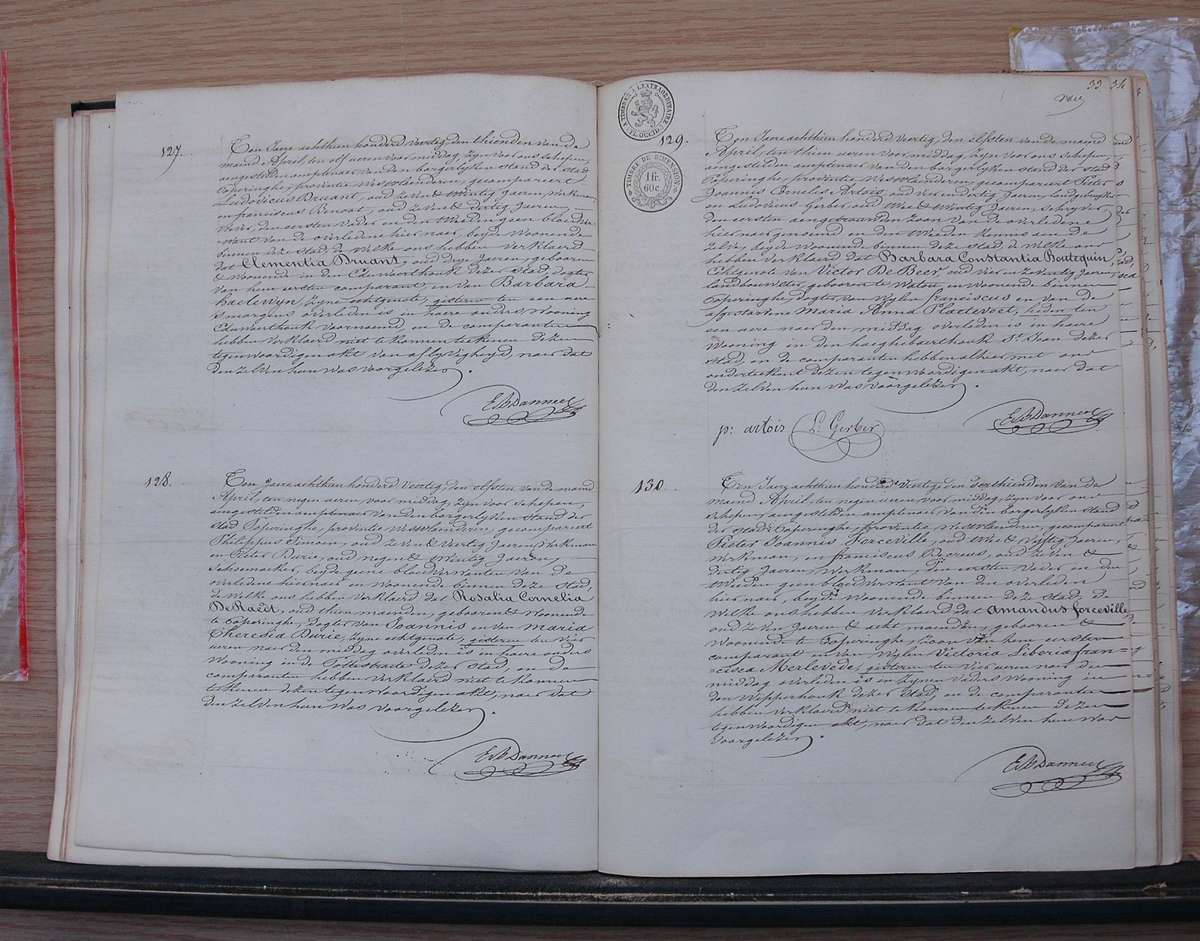 127.
Ten Jare achthien honderd veertig den thienden van de
maand April ten elf uren voor middag, zyn voor ons schepen,
aengestelden amptenaer van den borgerlyken stand der stad
Poperinghe, provintie Westvlanderen, gecompareert
Ludovicus Druant, oud
en franciscus oud zeven & dertig Jaeren,
den eersten vader en den tweeden geen bloedver-
want van de overledene hier naer beyd woonende
binnen deze stad de welke ons hebben verklaerd
dat Clementia Druant, oud dry Jaeren, gebooren
& woonende in den Couwerthoek dezer stad, dogter
van hem eersten comparant, en van Barbara
Kaelewyn, zyne echtgenote, gisteren ten een ure
's morgens overleden is in haere ouders wooning
Couwerthoek voornoemd, en de comparanten
hebben verklaerd niet te konnen teekenen dezen
tegenwoordigen akt van aflyvigheyd, naer dat
den zelven hun was voorgelezen.
128.
Ten Jare achthien honderd veertig, den elfsten van de maand
April, ten negen uren, voor middag, zyn voor ons schepen,
aengestelden amptenaer van den borgerlyken stand der
stad Poperinghe, provintie Westvlanderen, gecompareert
Philippus Simoen, oud zeven & veertig Jaeren, werkman
en Pieter Durie, oud negen & twintig Jaeren
Schoenmaeker, beyde geene bloedverwanten van de
overledene hier naer en woonende binnen deze stad,
de welke ons hebben verklaerd dat Rosalia Cornelia
De Raedt, oud thien maenden, gebooren & woonende
te Poperinghe, dogter van Joannis en van Maria
Theresia Durie, zyne echtgenote, gisteren ten vier
uren naer den middag overleden is in haere ouders
wooning in de Pottestraete dezer stad, en de
comparanten hebben verklaerd niet te konnen
teekenen dezen tegenwoordigen akt, naer dat
den zelven hun was voorgelezen.
33 34
TIMBRE EXTRAORDINAIRE
FL. OCCID.
TIMBRE DE DIMENSION
1 fr
60c
129.
Ten Jare achthien honderd veertig, den elfsten van de maand
April ten thien uren voor middag, zyn voor ons schepen,
aengestelden amptenaer van den borgerlyken stand der stad
Poperinghe, provintie Westvlanderen, gecompareert Pieter
Joannes Cornelis Artois, oud Jaeren, landbouwer
en Ludovicus Gerber, oud twee & veertig Jaeren, schryver
den eersten zoon van de overledene
hier naer genoemd en den tweeden kennis van de
zelve, beyde woonende binnen deze stad, de welke ons
hebben verklaerd dat Barbara Constantia Boutequin
Echtgenote van Victor De Beer, oud vier en tzestig Jaeren,
landbouwster, gebooren te Watou en woonende binnen
Poperinghe, dogter van wylen franciscus en van de
afgestorvene Maria Anna Plaetevoet, heden ten
een ure naer den middag overleden is in haere
wooning in den haeghebaerthoek St. Jean dezer
stad, en de comparanten hebben alhier met ons
onderteekend dezen tegenwoordigen akt, naer dat
den zelven hun was voorgelezen.
p: artois L: Gerber
130.
Ten Jare achthien honderd veertig, den zesthienden van de
maand April, ten negen uren voor middag, zyn voor ons
schepen, aengestelden amptenaer van den borgerlyken stand
der stad Poperinghe, provintie Westvlanderen, gecompareert
Pieter Joannes Forceville, oud twee & vyftig Jaeren,
werkman, en franciscus oud zeven &
dertig Jaeren, werkman, den eersten vader en den
tweeden geen bloedverwant van den overleden
hier naer, beyde woonende binnen deze stad, de
welke ons hebben verklaerd dat Amandus forceville,
oud zeven Jaeren & acht maenden, gebooren &
woonende te Poperinghe, zoon van hem eersten
comparant en van wylen Victoria Liberia fran=
cisca Merlevede, gisteren ten vier uren naer den
middag overleden is in zynen vaders wooning in
den Wipperhoek dezer stad, en de comparanten
hebben verklaerd niet te konnen teekenen dezen
tegenwoordigen akt, naer dat den zelven hun was
voorgelezen.